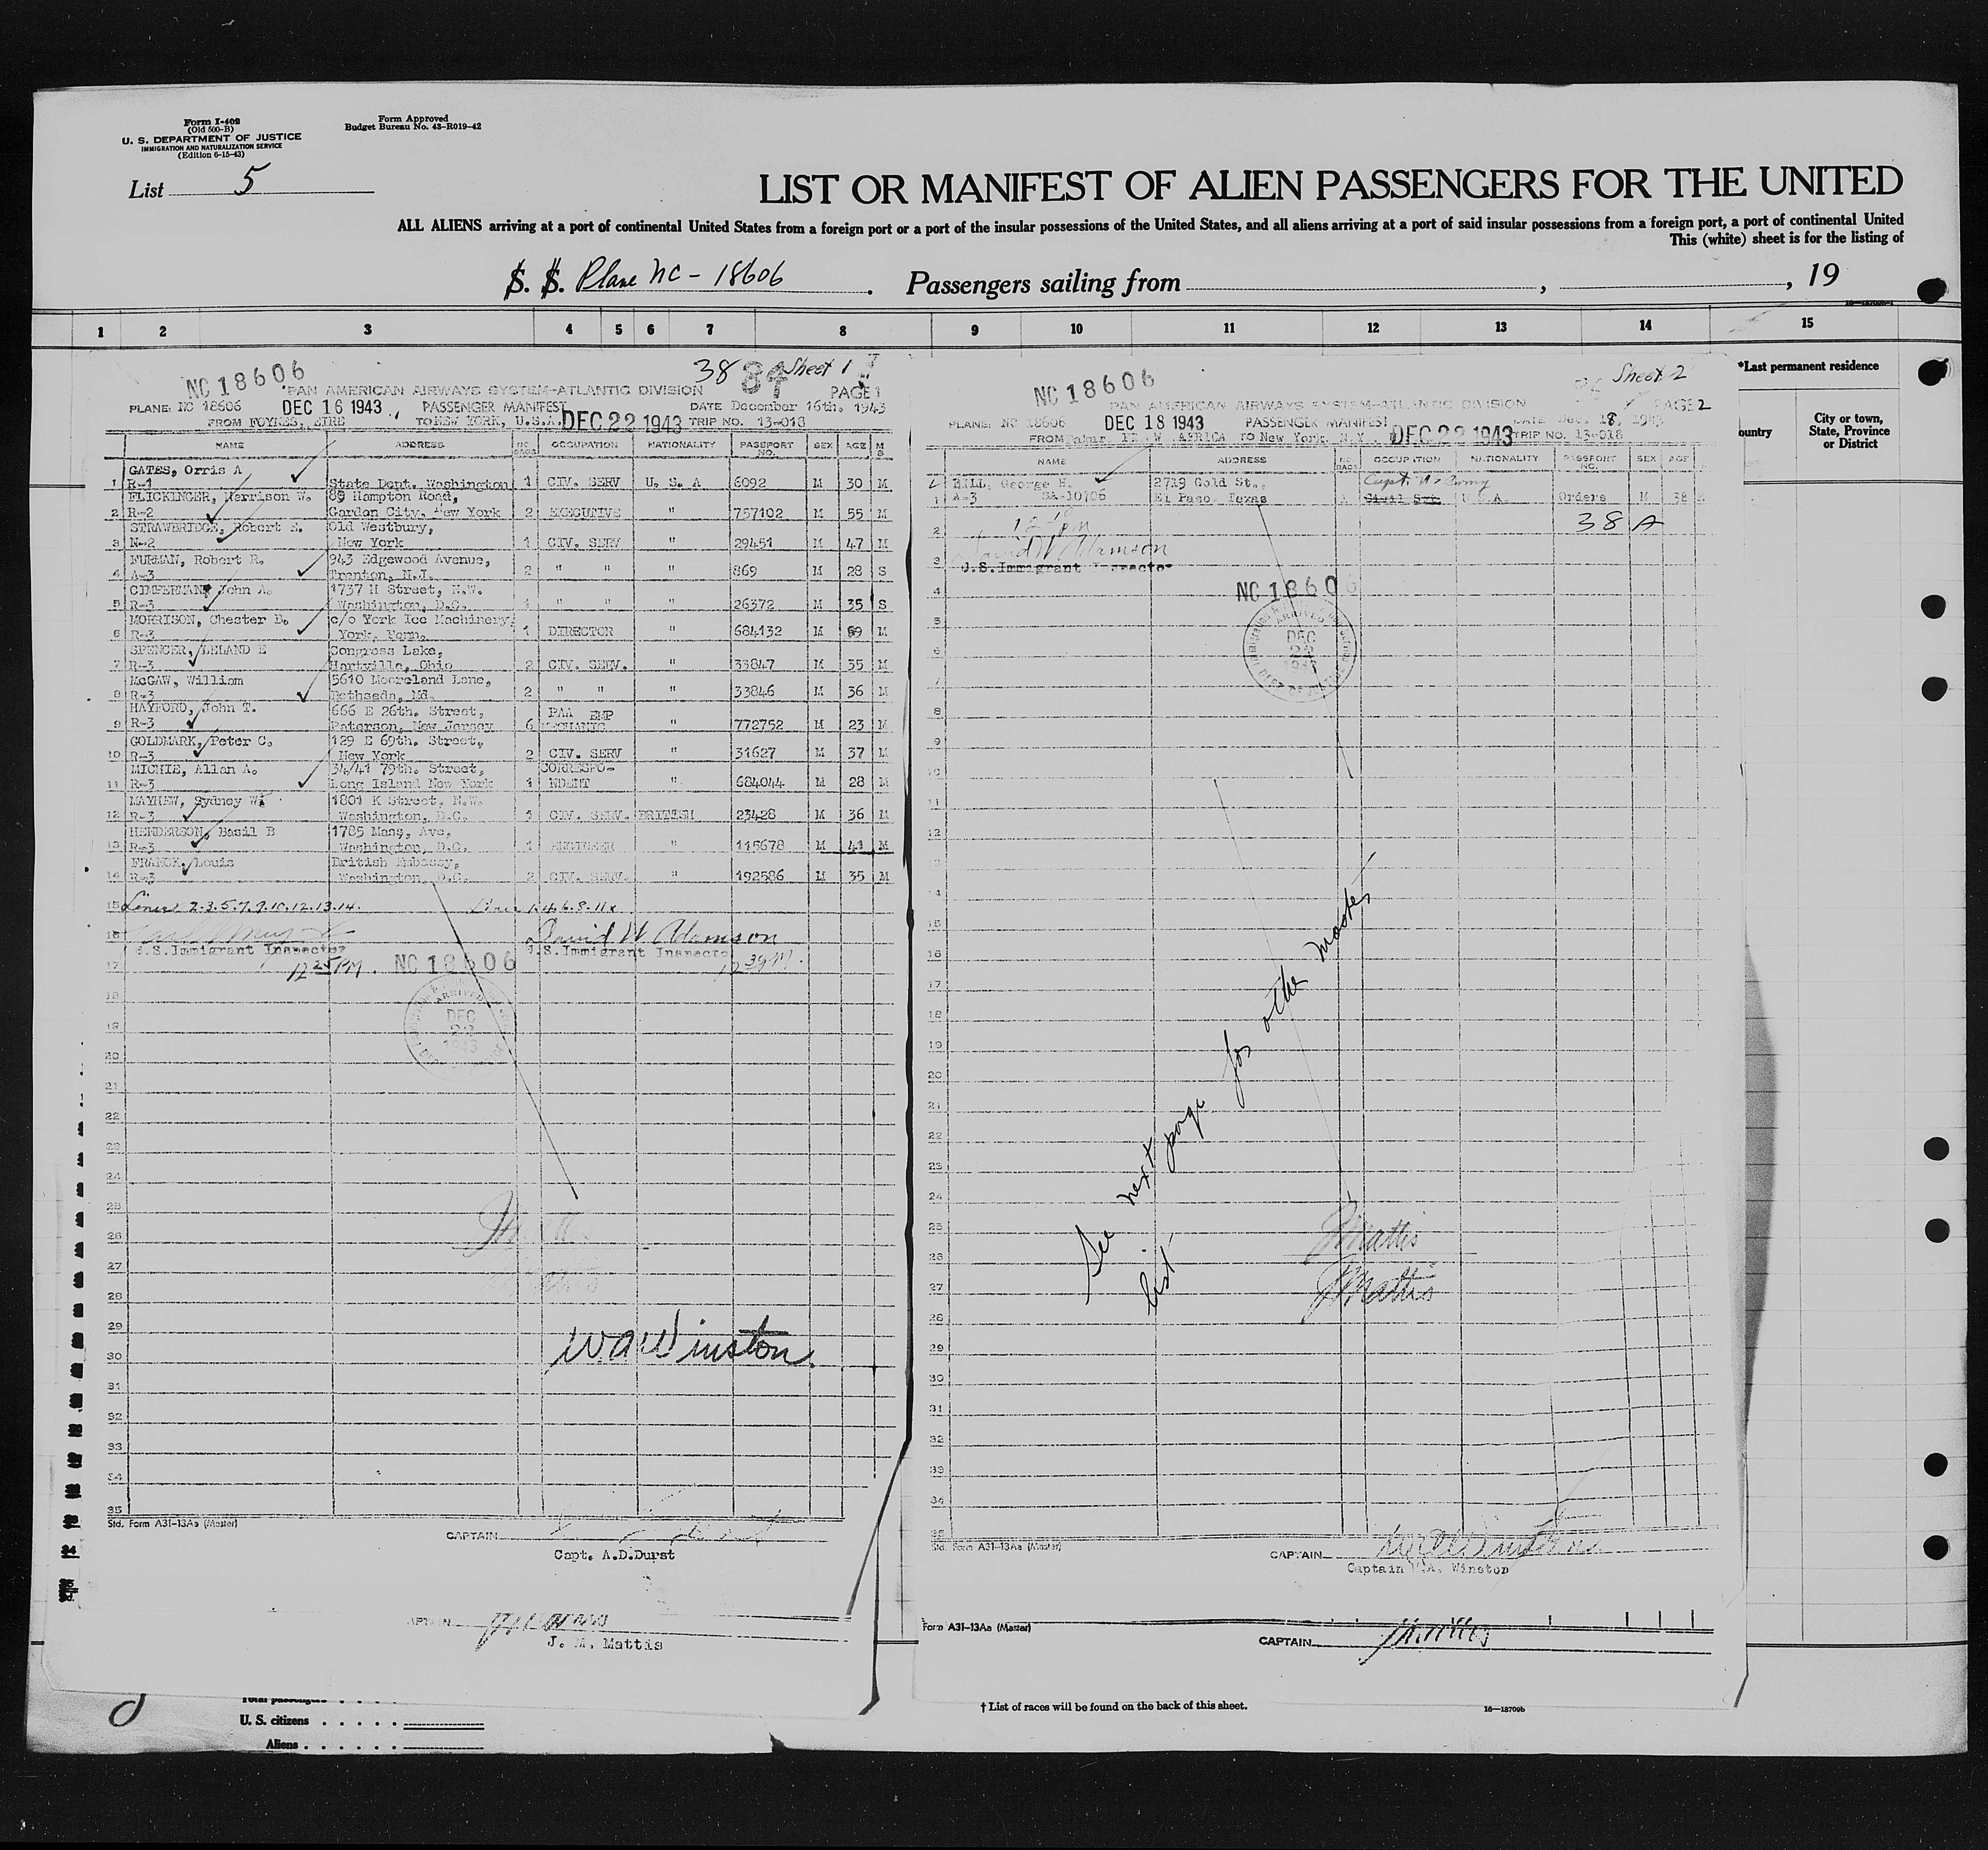 Form I-402
(Old 500-B)
U. S. DEPARTMENT OF JUSTICE
IMMIGRATION AND NATURALIZATION SERVICE
(Edition 6-15-43)
Form Approved
Budget Bureau No. 43-R019-42
List 5
LIST OR MANIFEST OF ALIEN PASSENGERS FOR THE UNITED
ALL ALIENS arriving at a port of continental United States from a foreign port or a port of the insular possessions of the United States, and all aliens arriving at a port of said insular possessions from a foreign port, a port of continental United
This (white) sheet is for the listing of
S. S. Plane NC - 18606 . Passengers sailing from , , 19
1 2 3 4 5 6 7 8 9 10 11 12 13 14 15
NC 18606 38 84 Sheet 1
PAN AMERICAN AIRWAYS SYSTEM-ATLANTIC DIVISION PAGE 1
PLANE: NC 18606 DEC 16 1943 PASSENGER MANIFEST DATE December 16th. 1943
FROM FOYNES, EIRE TO NEW YORK, U.S.A. DEC 22 1943 TRIP NO. 13-018
NAME ADDRESS NO. BAGS OCCUPATION NATIONALITY PASSPORT NO. SEX AGE M S
GATES, Orris A
1 R-1 State Dept. Washington 1 CIV. SERV U. S. A 6092 M 30 M
FLICKINGER, Harrison W. 89 Hampton Road,
2 R-2 Garden City, New York 2 EXECUTIVE " 757102 M 55 M
STRAWBRIDGE, Robert E. Old Westbury,
3 N-2 New York 1 CIV. SERV " 29451 M 47 M
FURMAN, Robert R. 943 Edgewood Avenue,
4 A-3 Trenton, N.J. 2 " " " 869 M 28 S
CIMPERMAN, John A. 1737 H Street, N.W.
5 R-3 Washington, D.C. 1 " " " 26372 M 35 S
MORRISON, Chester B. c/o York Ice Machinery
6 R-3 York, Penn. 1 DIRECTOR " 684132 M 59 M
SPENCER, LELAND E Congress Lake,
7 R-3 Hartville, Ohio 2 CIV. SERV. " 33847 M 35 M
McGAW, William 5610 Mooreland Lane,
8 R-3 Bethseda, Md. 2 " " " 33846 M 36 M
HAYFORD, John T. 666 E 26th. Street, PAA EMP
9 R-3 Paterson, New Jersey 6 MECHANIC " 772752 M 23 M
GOLDMARK, Peter C. 129 E 69th. Street,
10 R-3 New York 2 CIV. SERV " 31627 M 37 M
MICHIE, Allan A. 34/41 79th. Street, CORRESPO-
11 R-3 Long Island New York 1 NDENT " 684044 M 28 M
MAYHEW, Sydney W. 1801 K Street, N.W.
12 R-3 Washington, D.C. 1 CIV. SERV. BRITISH 23428 M 36 M
HENDERSON, Basil B 1785 Mass, Ave,
13 R-3 Washington, D.C. 1 ENGINEER " 115678 M 41 M
FRANCK, Louis British Embassy,
14 R-3 Washington, D.C. 2 CIV. SERV. " 192586 M 35 M
15 Lines 2.3.5.7.9.10.12.13.14. Lines 1.4.6.8.11
16 David W Adamson
U.S.Immigrant Inspector U.S.Immigrant Inspector
17 12 25 PM. NC 18606 12 39
18
ARRIVED
DEC
22
1943
19
20
21
22
23
24
25
26
27
28
29
W A Winston
30
31
32
33
34
35
Std. Form A31-13Aa (Master)
CAPTAIN
Capt. A.D.Durst
CAPTAIN
J. M. Mattis
Total passengers
U. S. citizens
Aliens
NC 18606 Sheet 2
PAN AMERICAN AIRWAYS SYSTEM-ATLANTIC DIVISION PAGE 2
PLANE: NC 18606 DEC 18 1943 PASSENGER MANIFEST DATE Dec. 18, 1943
FROM Dakar, FR. W. AFRICA TO New York, N.Y. DEC 22 1943 TRIP NO. 13-018
NAME ADDRESS NO. BAGS OCCUPATION NATIONALITY PASSPORT NO. SEX AGE
HILL, George H. 2719 Gold St., Capt. US Army
1 A-3 SA-10706 El Paso, Texas Civil Srt. U.S.A. Orders M 38
2 12 PM 38 A
David W Adamson
3 U.S.Immigrant Inspector
NC 18606
ARRIVED
DEC
22
1943
4
5
6
7
8
9
10
11
12
13
14
15
16
17
18
19
20
21
22
23
24
25
26
27
28
29
30
31
32
33
34
35
See next page for other master
list
J Mattis
J Mattis
Std. Form A31-13Aa (Master)
CAPTAIN W A Winston
Captain W.A. Winston
Form A31-13Aa (Master)
CAPTAIN J Mattis
† List of races will be found on the back of this sheet.
16—18709b
*Last permanent residence
ountry
City or town,
State, Province
or District